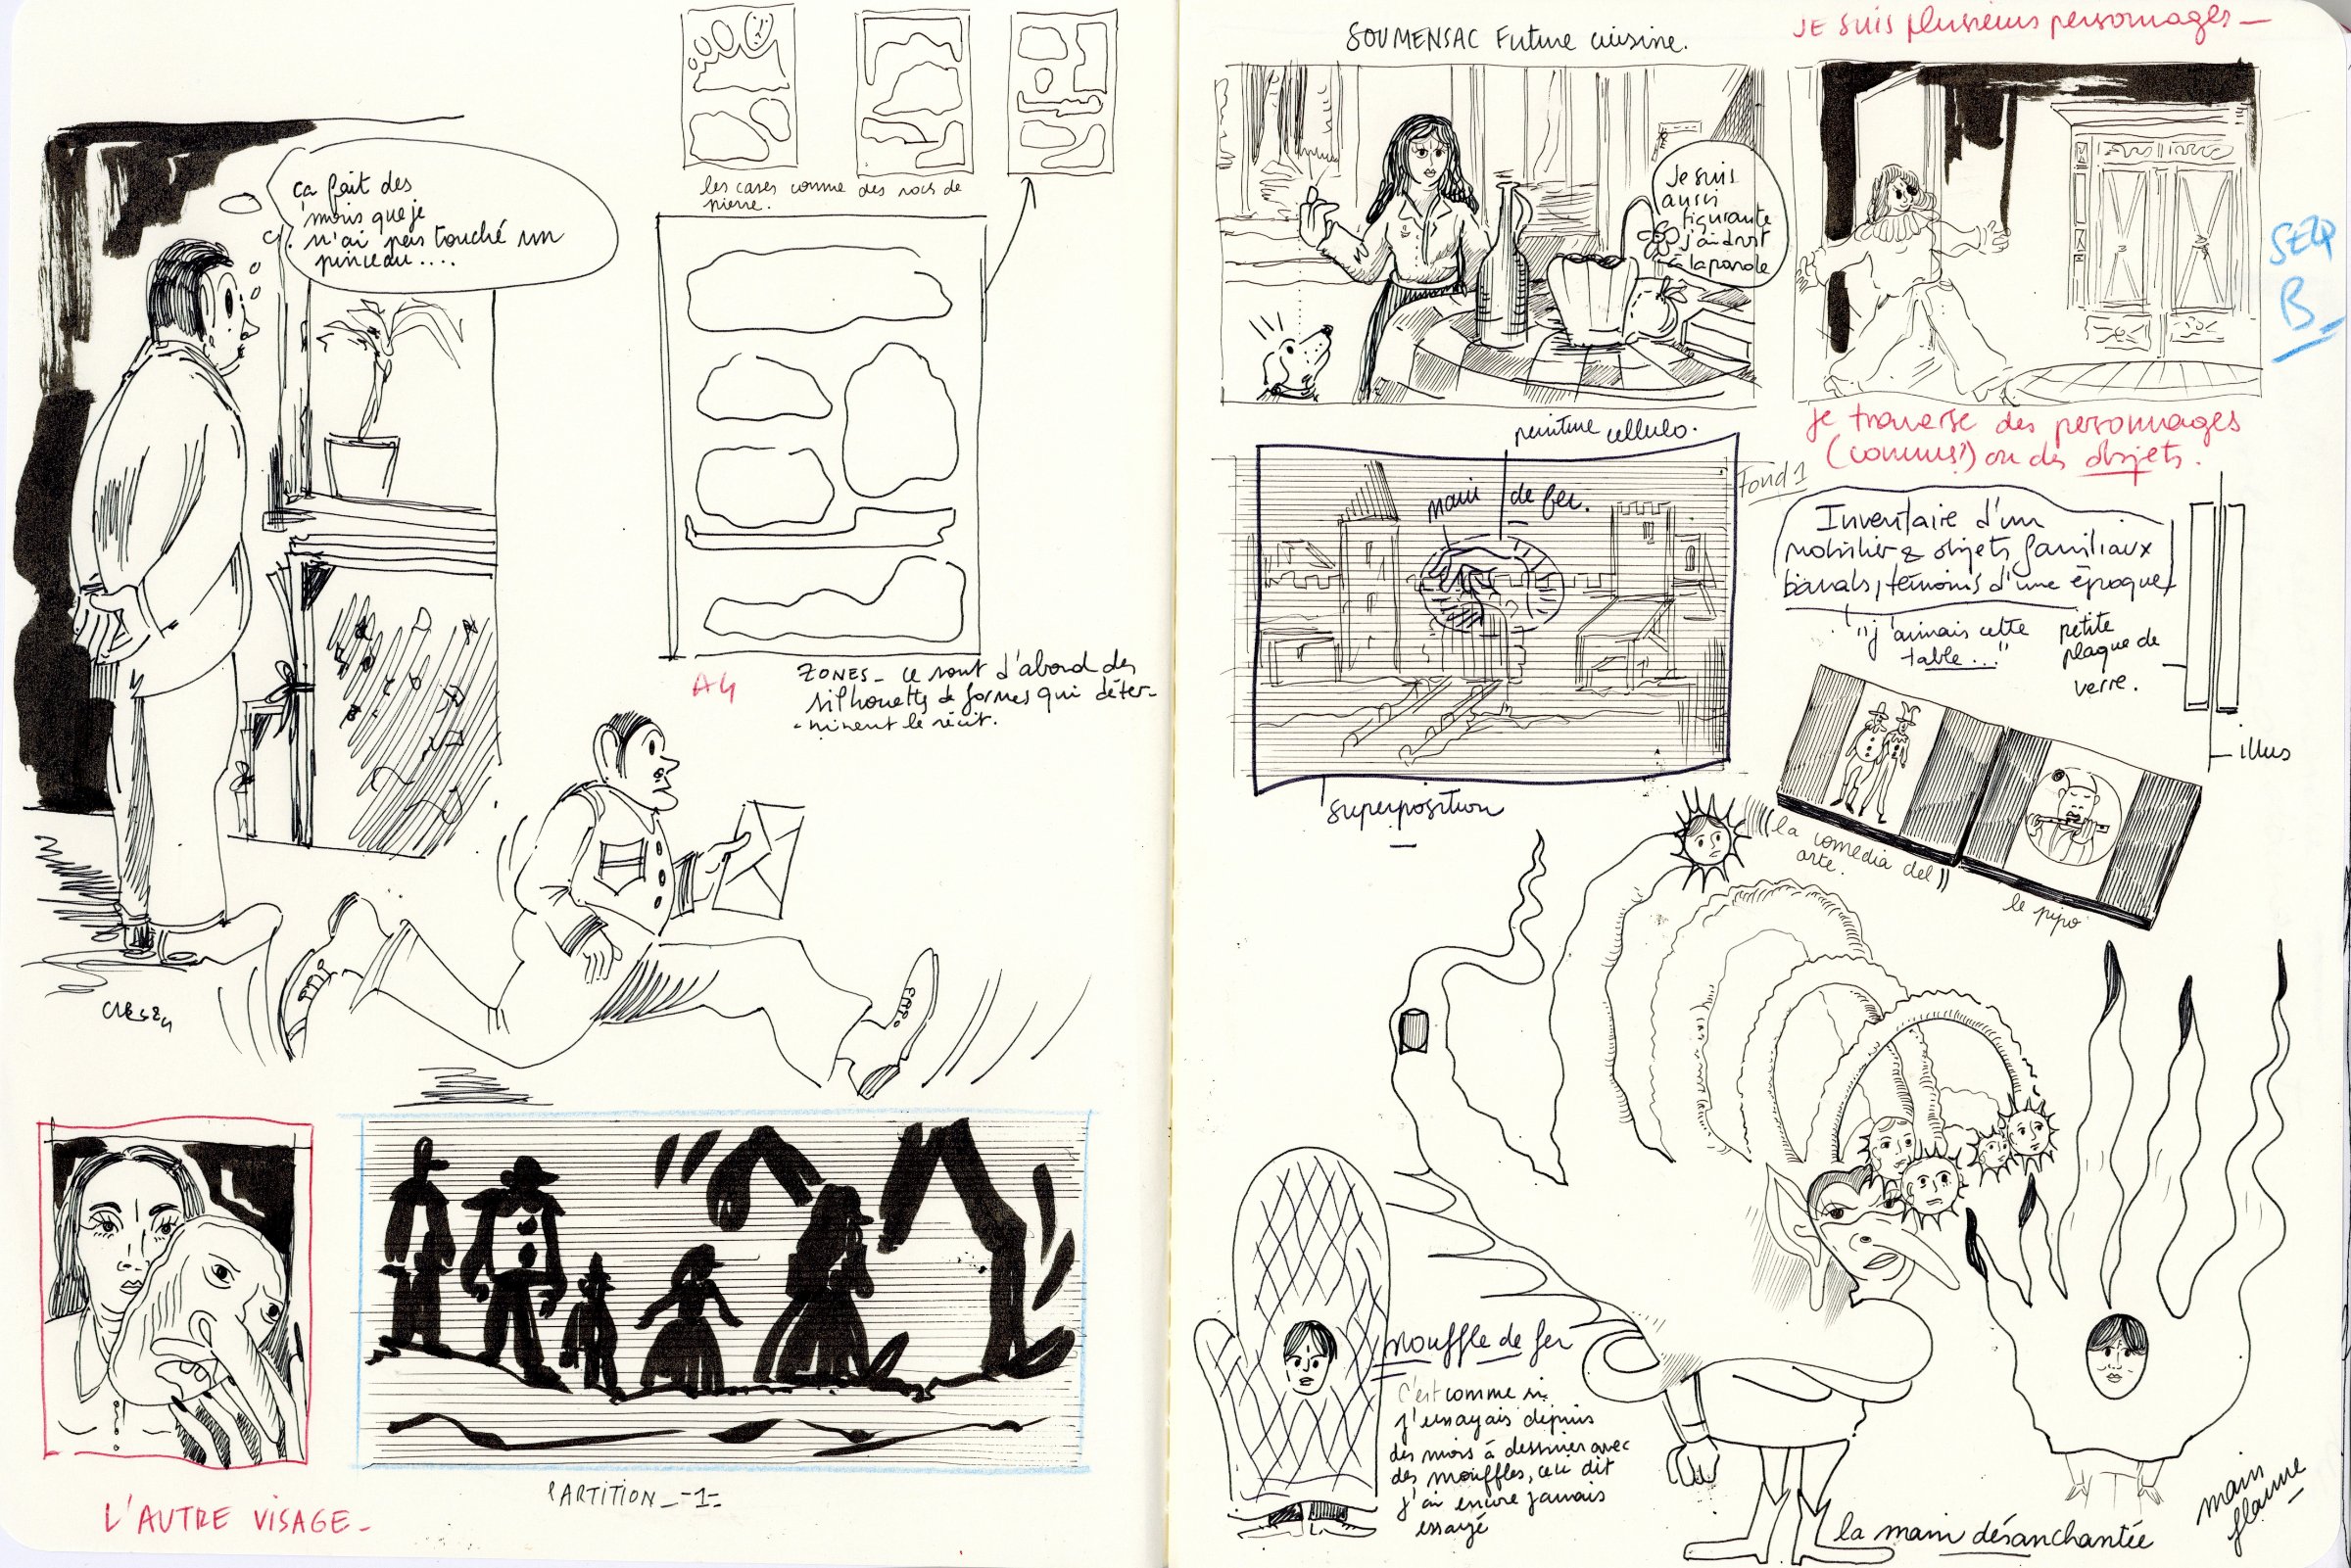 ça fait des
mois que je
n'ai pas touché un
pinceau....
les cases comme des rocs de
pierre.
A4
ZONES_ ce sont d'abord des
silhouettes de formes qui déter-
-minent le récit.
L'AUTRE VISAGE_
PARTITION_-1-
SOUMENSAC Future cuisine.
Je suis
aussi
figurante
j'ai droit
à la parole
JE SUIS plusieurs personnages_
SEQ
B_
Je traverse des personnages
(connus?) ou des objets.
peinture cellulo.
Fond 1
main de fer.
superposition
Inventaire d'un
mobilier & objets familiaux
banals, témoins d'une époque
"j'aimais cette
table..."
petite
plaque de
verre.
illus
la comedia del
arte.
le pipo
mouffle de fer
C'est comme si
j'essayais depuis
des mois à dessiner avec
des mouffles, ceci dit
j'ai encore jamais
essayé
la main désanchantée
main
flamme